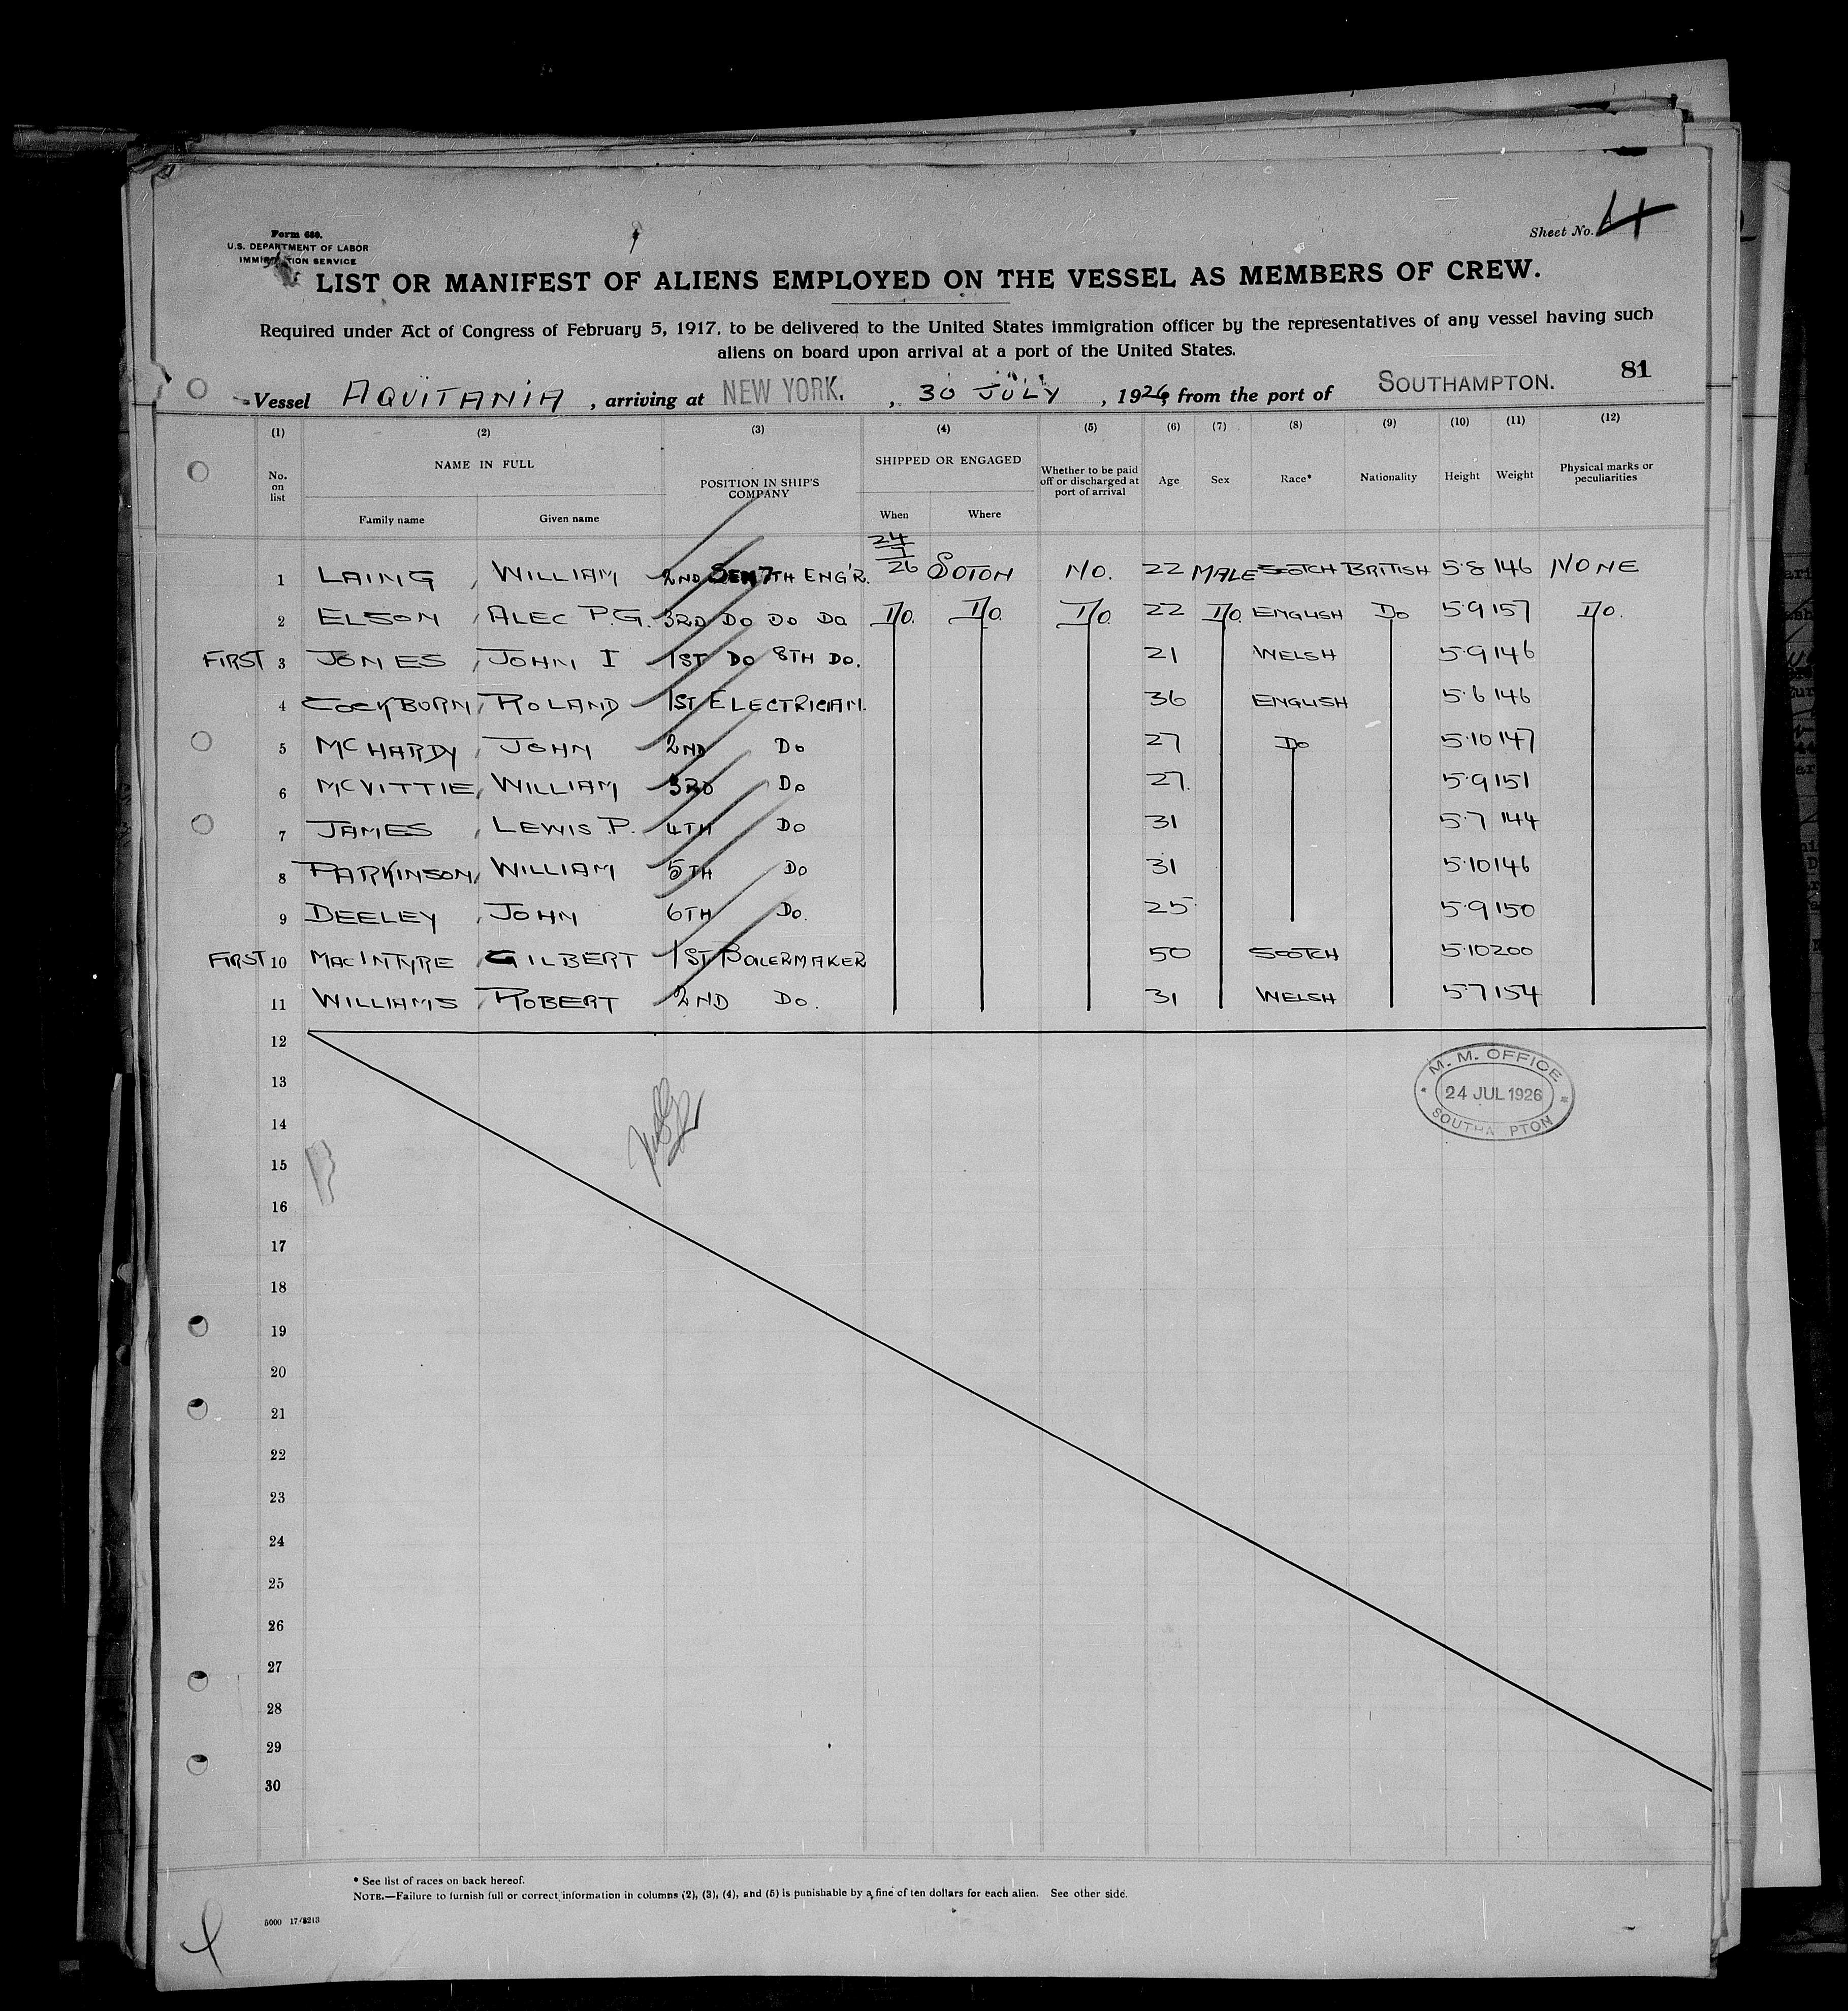 Form 680.
U.S. DEPARTMENT OF LABOR
IMMIGRATION SERVICE
Sheet No. 4
LIST OR MANIFEST OF ALIENS EMPLOYED ON THE VESSEL AS MEMBERS OF CREW.
Required under Act of Congress of February 5, 1917, to be delivered to the United States immigration officer by the representatives of any vessel having such
aliens on board upon arrival at a port of the United States.
81
Vessel AQUITANIA, arriving at NEW YORK., 30 JULY, 1926, from the port of SOUTHAMPTON.
(1) (2) (3) (4) (5) (6) (7) (8) (9) (10) (11) (12)
No. on list NAME IN FULL POSITION IN SHIP'S COMPANY SHIPPED OR ENGAGED Whether to be paid off or discharged at port of arrival Age Sex Race* Nationality Height Weight Physical marks or peculiarities
Family name Given name When Where
1 LAING, WILLIAM 2ND SEN 7TH ENG'R. 24/7/26 SOTON NO. 22 MALE SCOTCH BRITISH 5·8 146 NONE
2 ELSON, ALEC P.G. 3RD DO DO DO DO. DO. DO. 22 DO. ENGLISH DO 5·9 157 DO.
FIRST 3 JONES, JOHN I 1ST DO 8TH DO. 21 WELSH 5·9 146
4 COCKBURN, ROLAND 1ST ELECTRICIAN. 36 ENGLISH 5·6 146
5 MCHARDY, JOHN 2ND DO 27 DO 5·10 147
6 MCVITTIE, WILLIAM 3RD DO 27. 5·9 151
7 JAMES, LEWIS P. 4TH DO 31 5·7 144
8 PARKINSON, WILLIAM 5TH DO 31 5·10 146
9 BEELEY, JOHN 6TH DO. 25 5·9 150
FIRST 10 MACINTYRE, GILBERT 1ST BOILERMAKER 50 SCOTCH 5·10 200
11 WILLIAMS, ROBERT 2ND DO. 31 WELSH 5·7 154
12
13
14
15
16
17
18
19
20
21
22
23
24
25
26
27
28
29
30
M. M. OFFICE
24 JUL 1926
SOUTHAMPTON
* See list of races on back hereof.
NOTE.—Failure to furnish full or correct information in columns (2), (3), (4), and (5) is punishable by a fine of ten dollars for each alien. See other side.
5000 17/8213